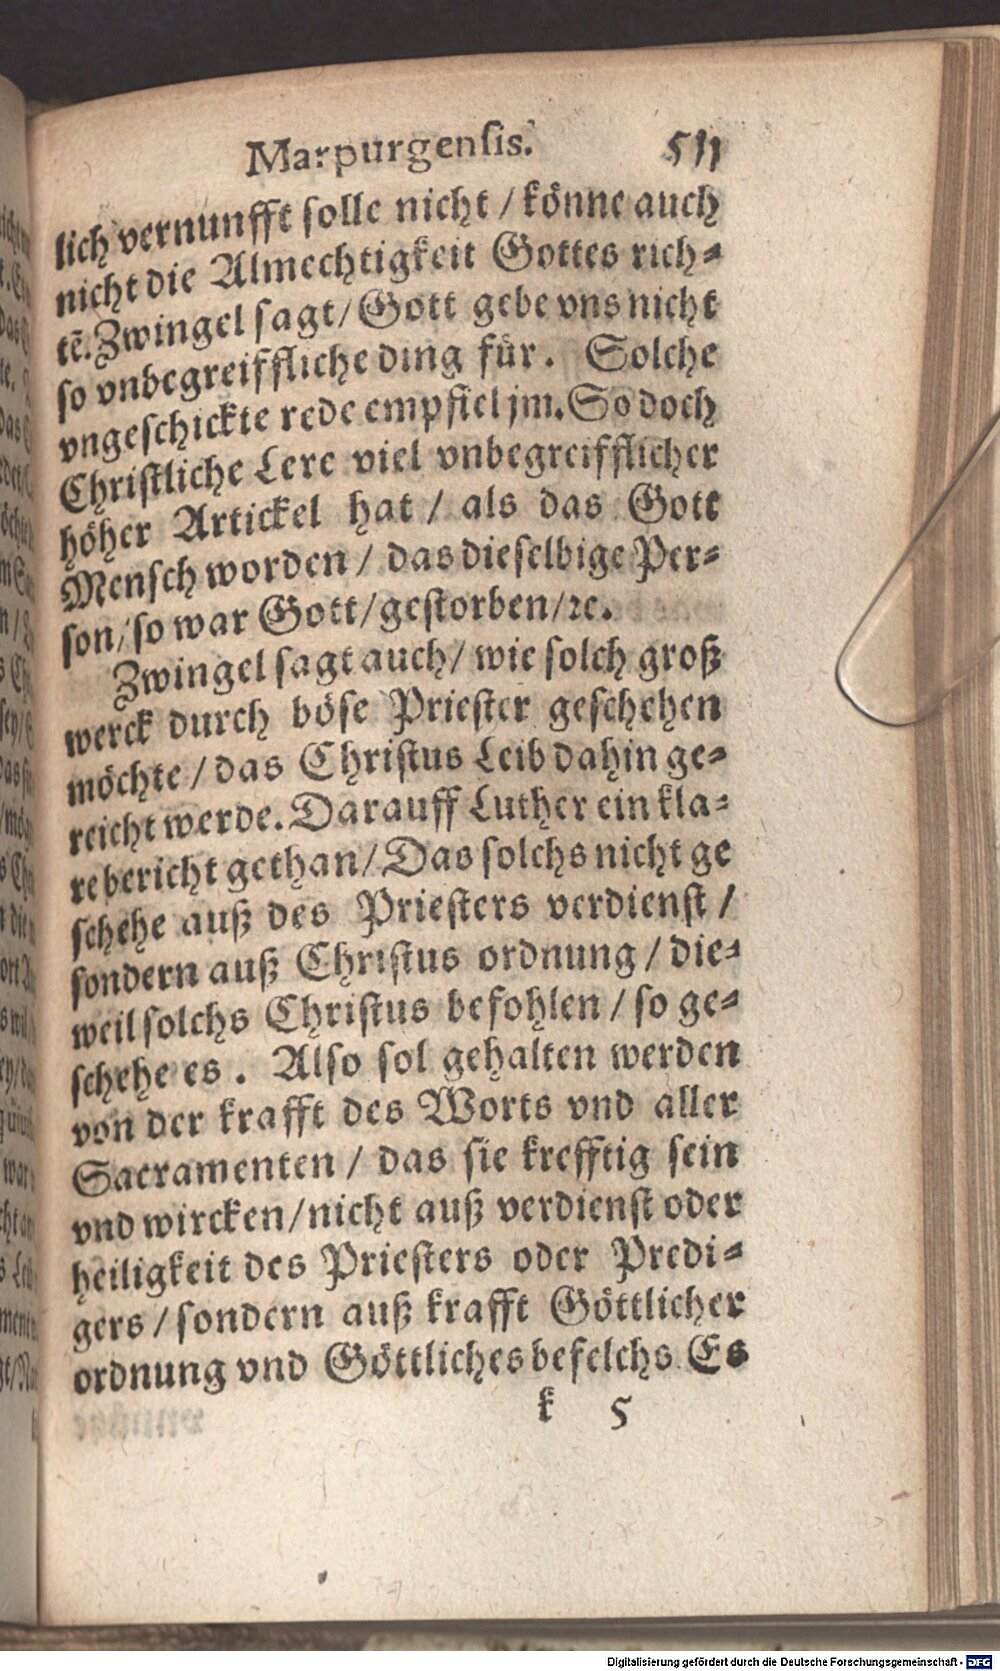 Marpurgensis. 511
lich vernunfft solle nicht / könne auch
nicht die Almechtigkeit Gottes rich⸗
tē. Zwingel sagt / Gott gebe vns nicht
so vnbegreiffliche ding für. Solche
vngeschickte rede empfiel jm. So doch
Christliche Lere viel vnbegreifflicher
höher Artickel hat / als das Gott
Mensch worden / das dieselbige Per⸗
son / so war Gott / gestorben / ꝛc.
Zwingel sagt auch / wie solch groß
werck durch böse Priester geschehen
möchte / das Christus Leib dahin ge⸗
reicht werde. Darauff Luther ein kla⸗
re bericht gethan / Das solchs nicht ge
schehe auß des Priesters verdienst /
sondern auß Christus ordnung / die⸗
weil solchs Christus befohlen / so ge⸗
schehe es. Also sol gehalten werden
von der krafft des Worts vnd aller
Sacramenten / das sie krefftig sein
vnd wircken / nicht auß verdienst oder
heiligkeit des Priesters oder Predi⸗
gers / sondern auß krafft Göttlicher
ordnung vnd Göttliches befelchs Es
k 5
Digitalisierung gefördert durch die Deutsche Forschungsgemeinschaft - DFG